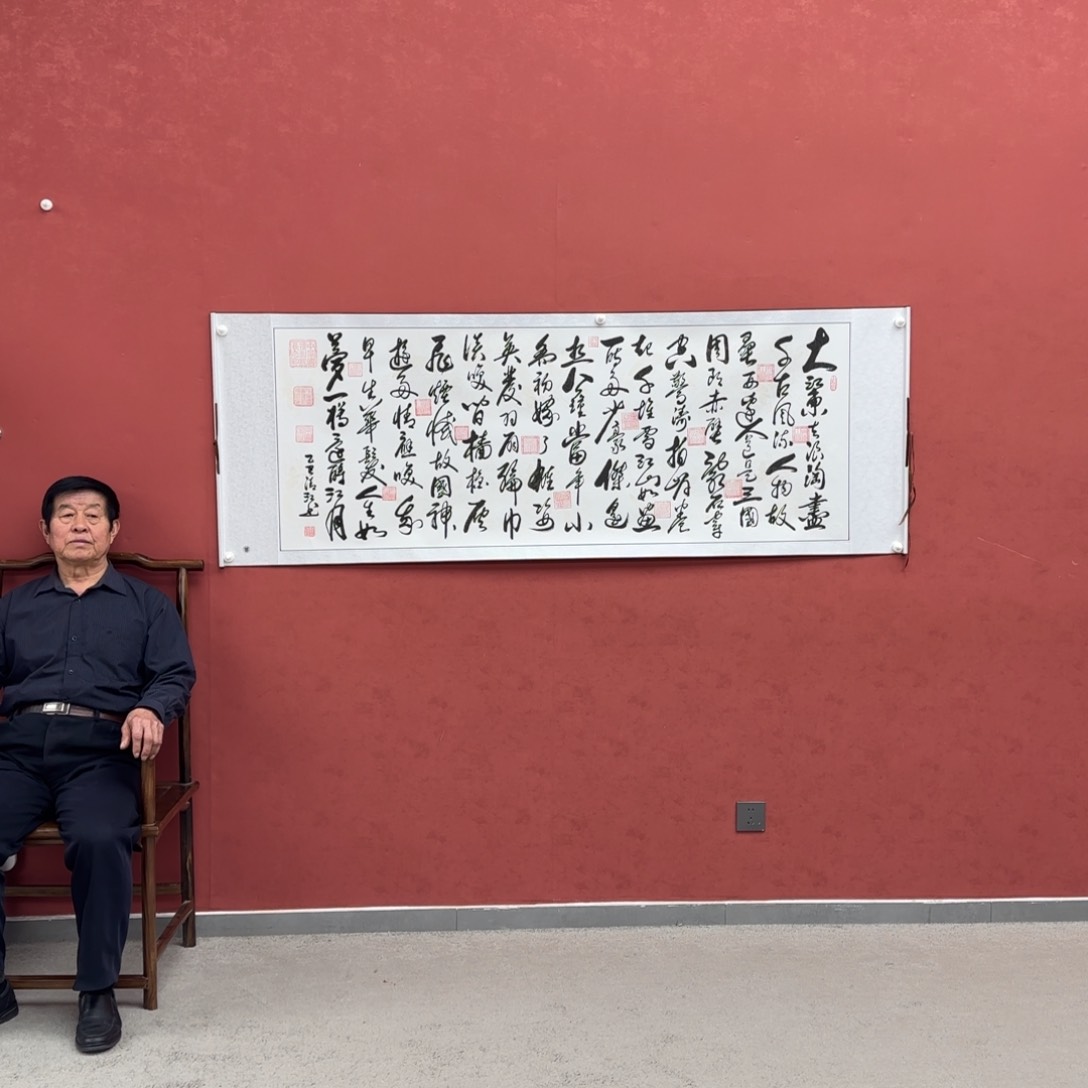 大江東去浪淘盡
千古風流人物故
壘西邊人道是三國
周郎赤壁亂石穿
空驚濤拍岸卷
起千堆雪江山如畫
一時多少豪傑遙
想公瑾當年小
喬初嫁了雄姿
英發羽扇綸巾
談笑間檣櫓灰
飛煙滅故國神
遊多情應笑我
早生華髮人生如
夢一樽還酹江月
乙巳